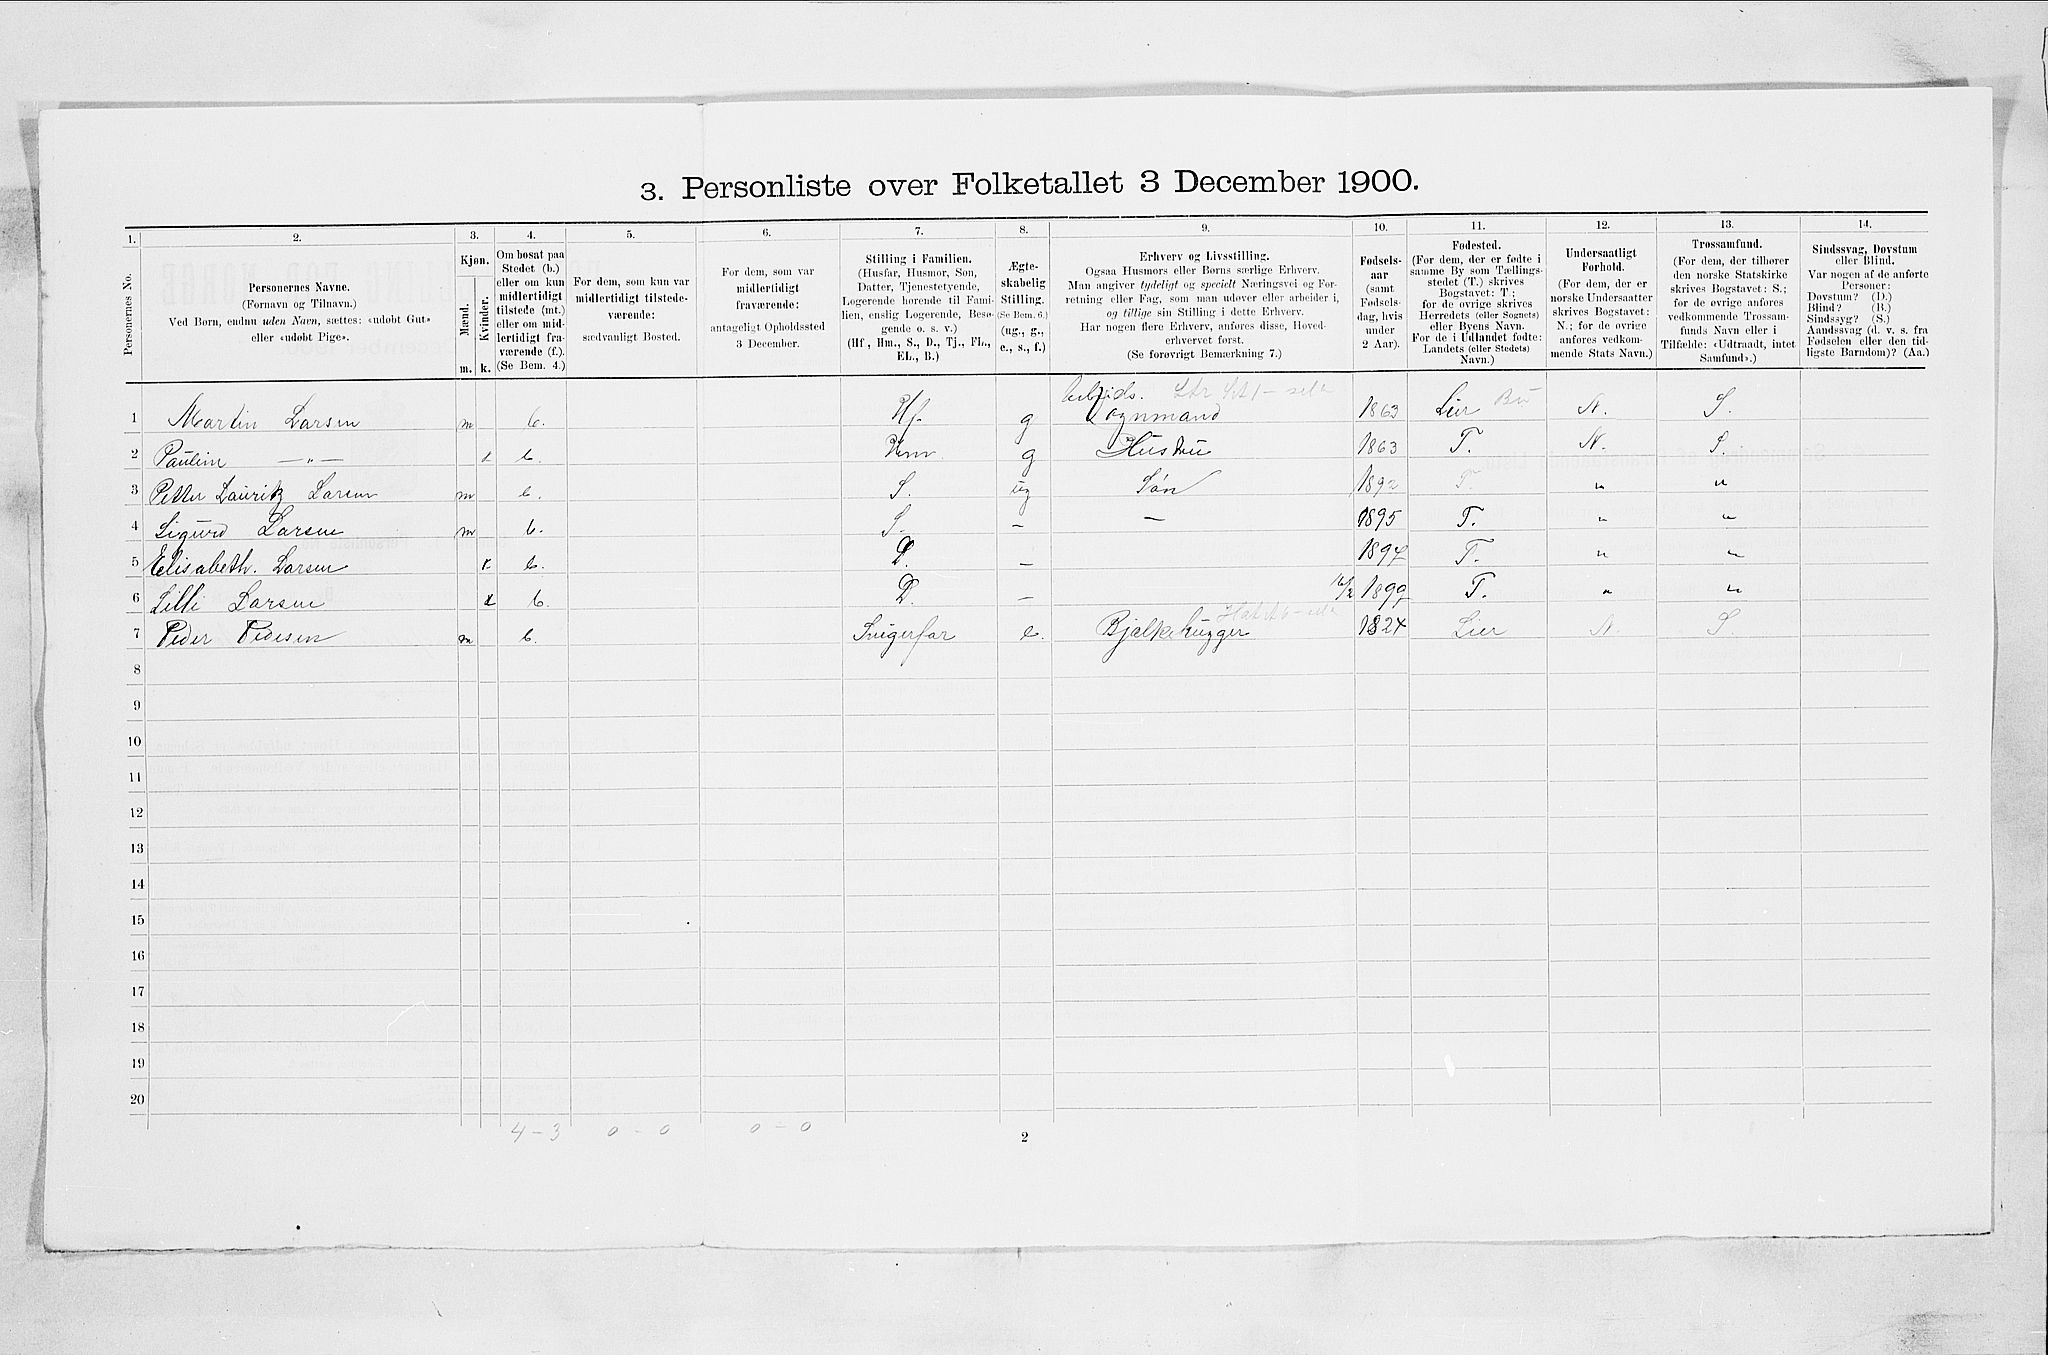 3. Personliste over Folketallet 3 December 1900.
1. 2. 3. 4. 5. 6. 7. 8. 9. 10. 11. 12. 13. 14.
Personernes No.
Personernes Navne.
(Fornavn og Tilnavn.)
Ved Børn, endnu uden Navn, sættes: «udøbt Gut»
eller «udøbt Pige».
Kjøn.
Mænd.
Kvinder.
m. k.
Om bosat paa
Stedet (b.)
eller om kun
midlertidigt
tilstede (mt.)
eller om mid-
lertidigt fra-
værende (f.).
(Se Bem. 4.)
For dem, som kun var
midlertidigt tilstede-
værende:
sædvanligt Bosted.
For dem, som var
midlertidigt
fraværende:
antageligt Opholdssted
3 December.
Stilling i Familien.
(Husfar, Husmor, Søn,
Datter, Tjenestetyende,
Logerende hørende til Fami-
lien, enslig Logerende, Besø-
gende o. s. v.)
(Hf, Hm., S., D., Tj., FL.,
EL., B.)
Ægte-
skabelig
Stilling.
(Se Bem. 6.)
(ug., g.,
e., s., f.)
Erhverv og Livsstilling.
Ogsaa Husmors eller Børns særlige Erhverv.
Man angiver tydeligt og specielt Næringsvei og For-
retning eller Fag, som man udøver eller arbeider i,
og tillige sin Stilling i dette Erhverv.
Har nogen flere Erhverv, anføres disse, Hoved-
erhvervet først.
(Se forøvrigt Bemærkning 7.)
Fødsels-
aar
(samt
Fødsels-
dag, hvis
under
2 Aar).
Fødested.
(For dem, der er fødte i
samme By som Tællings-
stedet (T.) skrives
Bogstavet: T;
for de øvrige skrives
Herredets (eller Sognets)
eller Byens Navn.
For de i Udlandet fødte:
Landets (eller Stedets)
Navn.)
Undersaatligt
Forhold.
(For dem, der er
norske Undersaatter
skrives Bogstavet:
N.; for de øvrige
anføres vedkom-
mende Stats Navn.)
Trossamfund.
(For dem, der tilhører
den norske Statskirke
skrives Bogstavet: S.;
for de øvrige anføres
vedkommende Trossam-
funds Navn eller i
Tilfælde: «Udtraadt, intet
Samfund».)
Sindssvag, Døvstum
eller Blind.
Var nogen af de anførte
Personer:
Døvstum? (D.)
Blind? (B.)
Sindssyg? (S.)
Aandssvag (d. v. s. fra
Fødselen eller den tid-
ligste Barndom)? (Aa.)
Arbeids.
1 Martin Larsen m b. Hf. g Vognmand 1863 Lier N. S.
2 Pauline —„— k b. Hm. g Hustru 1863 T. N. S.
3 Petter Lauritz Larsen m b. S. ug Søn 1892 T. „ „
4 Sigurd Larsen m b. S. — — 1895 T. „ „
5 Elisabeth. Larsen k b. D. — 1897 T. „ „
6 Lilli Larsen k b. D. — 1899 T. „ „
7 Peder Pedersen m b. Svigerfar e. Bjælkehugger 1824 Lier N. S
8
9
10
11
12
13
14
15
16
17
18
19
20
4 – 3 0 – 0 0 – 0
2